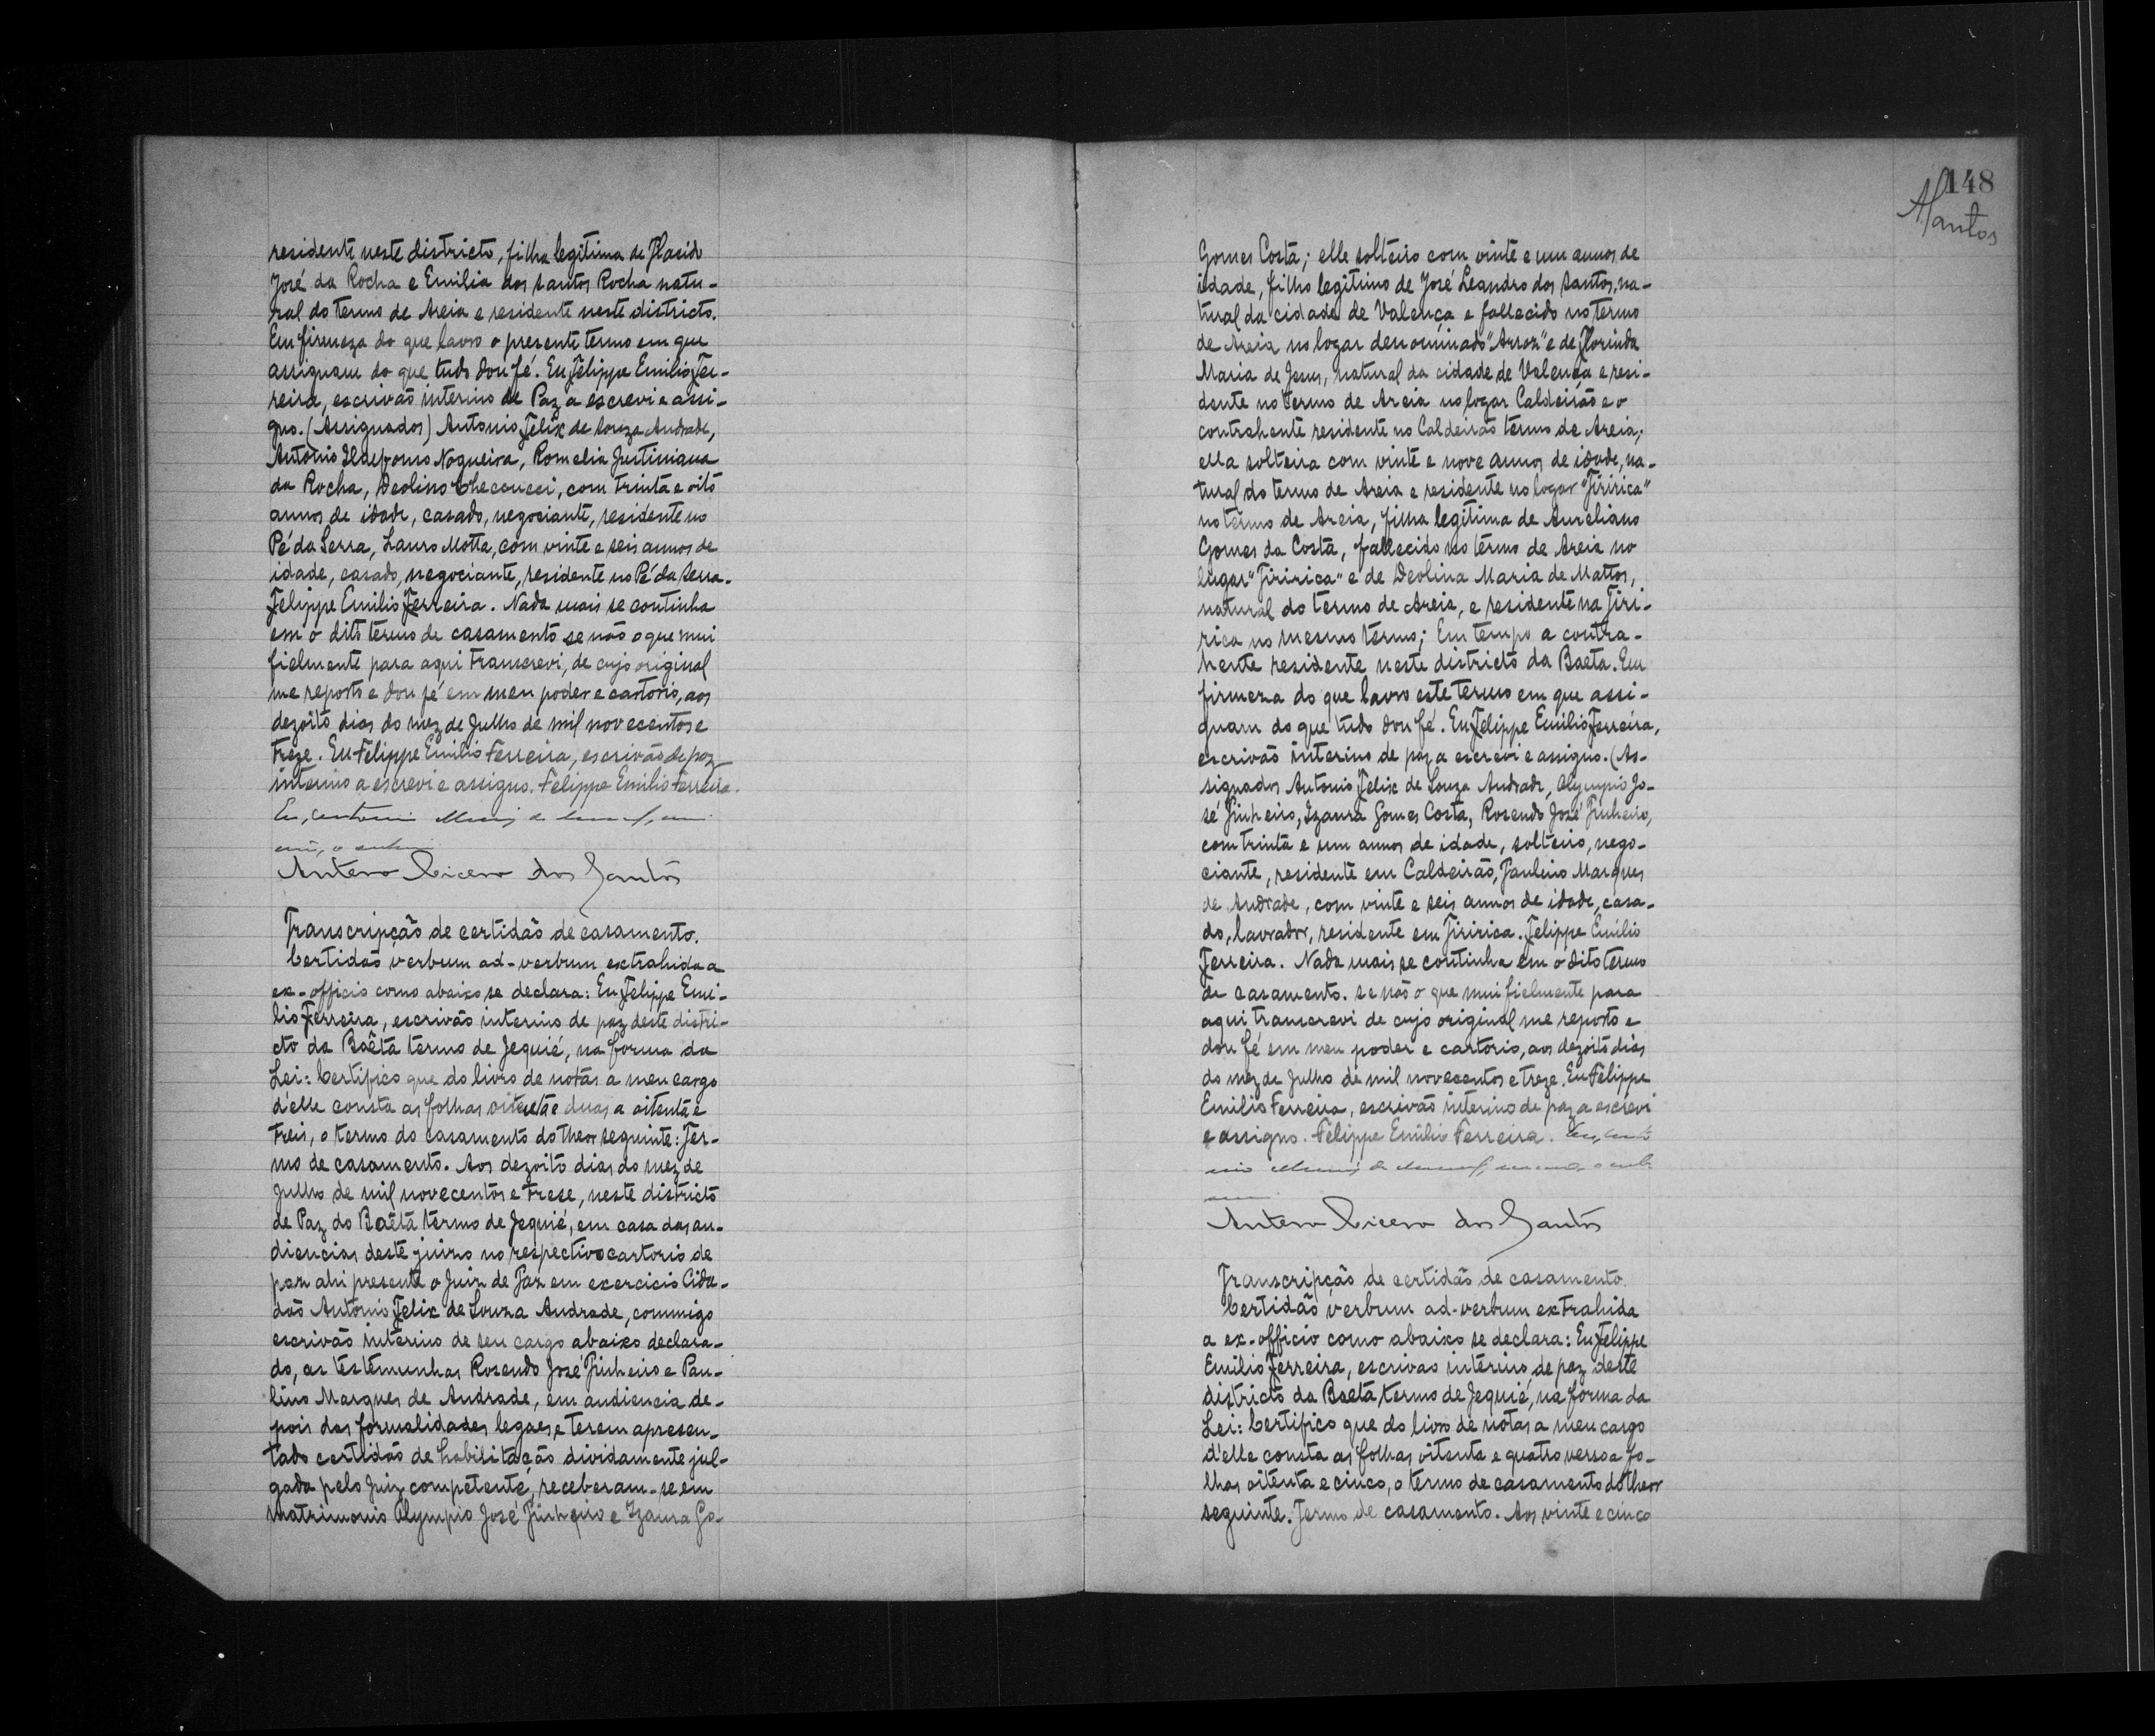 residente neste districto, filha legitima de Placido
José da Rocha e Emilia dos Santos Rocha natu-
ral do termo de Areia e residente neste districto.
Em firmeza do que lavro o presente termo em que
assignam do que tudo dou fé. Eu Felippe Emilio Fer-
reira, escrivão interino de Paz a escrevi e assi-
gno. (Assignados) Antonio Felix de Souza Andrade,
Antonio Ildefonso Nogueira, Romelia Justiniana
da Rocha, Deolino Checcucci, com trinta e oito
annos de idade, casado, negociante, residente no
Pé da Serra, Lauro Motta, com vinte e seis annos de
idade, casado, negociante, residente no Pé da Serra.
Felippe Emilio Ferreira. Nada mais se continha
em o dito termo de casamento se não o que mui
fielmente para aqui transcrevi, de cujo original
me reporto e dou fé em meu poder e cartorio, aos
dezoito dias do mez de Julho de mil novecentos e
treze. Eu Felippe Emilio Ferreira, escrivão de paz
interino a escrevi e assigno. Felippe Emilio Ferreira.
Eu,
Antero Cicero dos Santos
Transcripção de certidão de casamento.
Certidão verbum ad-verbum extrahida a
ex-officio como abaixo se declara: Eu Felippe Emi-
lio Ferreira, escrivão interino de paz deste distri-
cto da Baêta termo de Jequié, na forma da
Lei: Certifico que do livro de notas a meu cargo
d'elle consta as folhas oitenta e duas a oitenta e
treis, o termo do casamento do theor seguinte: Ter-
mo de casamento. Aos dezoito dias do mez de
Julho de mil novecentos e trese, neste districto
de Paz do Baêta termo de Jequié, em casa das au-
diencias deste juiso no respectivo cartorio de
paz ahi presente o Juiz de Paz em exercicio Cida-
dão Antonio Felix de Souza Andrade, commigo
escrivão interino de seu cargo abaixo declara-
do, as testemunhas Rosendo José Pinheiro e Pau-
lino Marques de Andrade, em audiencia de-
pois das formalidades legaes e terem apresen-
tado certidão de habilitação dividamente jul-
gada pelo Juiz competente, receberam-se em
matrimonio Olympio José Pinheiro e Izaura Go-
148
ASantos
Gomes Costa; elle solteiro com vinte e um annos de
idade, filho legitimo de José Leandro dos Santos, na-
tural da cidade de Valença e fallecido no termo
de Areia no logar denominado "Arroz" e de Florinda
Maria de Jesus, natural da cidade de Valença e resi-
dente no termo de Areia no logar Caldeirão e o
contrahente residente no Caldeirão termo de Areia;
ella solteira com vinte e nove annos de idade, na-
tural do termo de Areia e residente no logar "Tiririca"
no termo de Areia, filha legitima de Aureliano
Gomes da Costa, fallecido no termo de Areia no
lugar "Tiririca" e de Deolina Maria de Mattos,
natural do termo de Areia, e residente na Tiri-
rica no mesmo termo; Em tempo a contra-
hente residente neste districto da Baeta. Em
firmeza do que lavro este termo em que assi-
gnam do que tudo dou fé. Eu Felippe Emilio Ferreira,
escrivão interino de paz a escrevi e assigno. (As-
signados Antonio Felix de Souza Andrade, Olympio Jo-
sé Pinheiro, Izaura Gomes Costa, Rosendo José Pinheiro,
com trinta e um annos de idade, solteiro, nego-
ciante, residente em Caldeirão, Paulino Marques
de Andrade, com vinte e seis annos de idade, casa-
do, lavrador, residente em Tiririca. Felippe Emilio
Ferreira. Nada mais se continha em o dito termo
de casamento. se não o que mui fielmente para
aqui transcrevi de cujo original me reporto e
dou fé em meu poder e cartorio, aos dezoito dias
do mez de Julho de mil novecentos e treze. Eu Felippe
Emilio Ferreira, escrivão interino de paz a escrevi
e assigno. Felippe Emilio Ferreira.
Antero Cicero dos Santos
Transcripção de certidão de casamento.
Certidão verbum ad-verbum extrahida
a ex-officio como abaixo se declara: Eu Felippe
Emilio Ferreira, escrivao interino, de paz deste
districto da Baeta termo de Jequié, na forma da
Lei: Certifico que do livro de notas a meu cargo
d'elle consta as folhas oitenta e quatro verso a fo-
lhas oitenta e cinco, o termo de casamento do theor
seguinte. Termo de casamento. Aos vinte e cinco